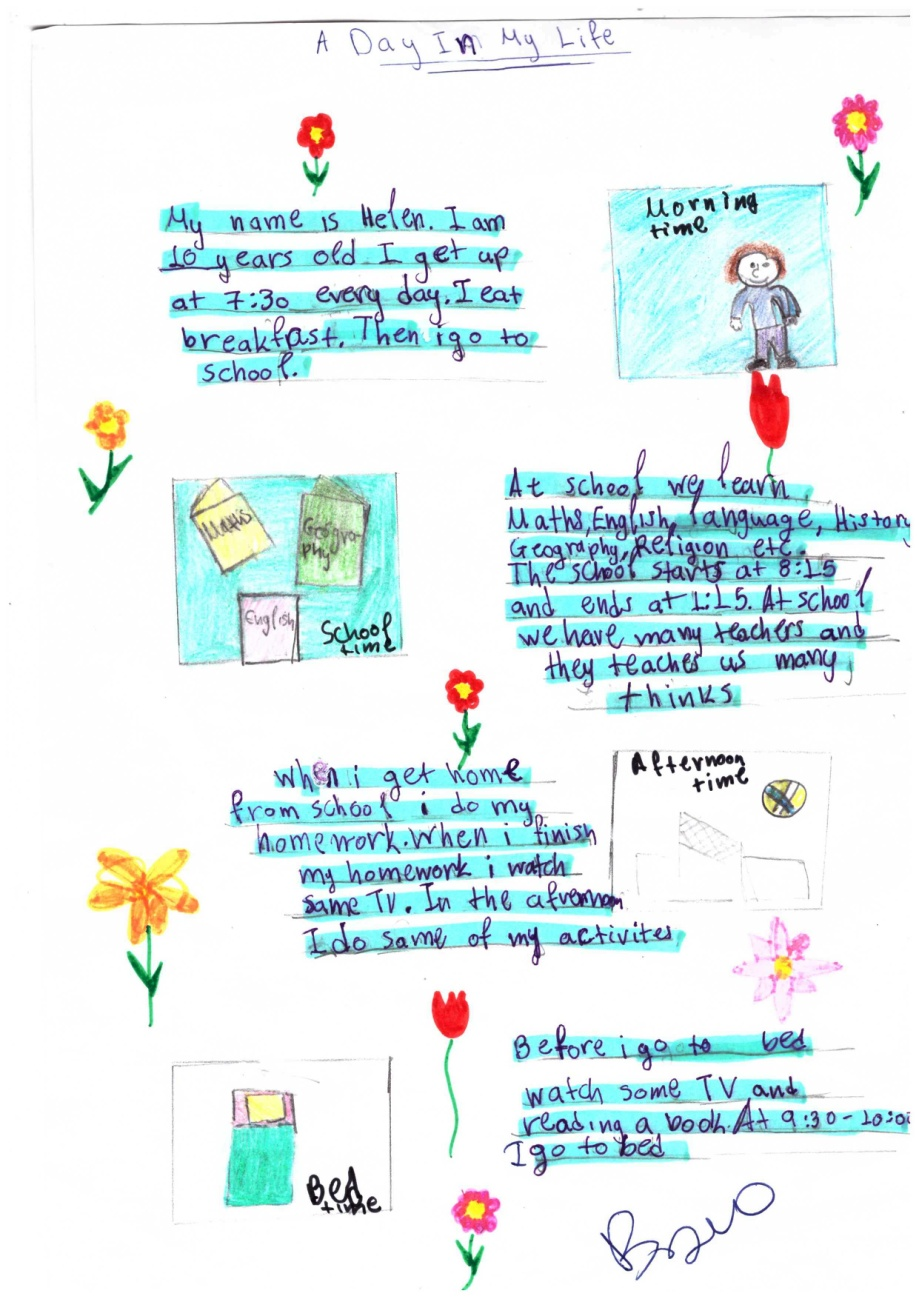 A Day In My Life
My name is Helen. I am
10 years old I get up
at 7:30 every day. I eat
breakfast. Then i go to
school.
Morning
time
At school we learn
Maths, English, language, History
Geography, Religion etc.
The school starts at 8:15
and ends at 1:15. At school
we have many teachers and
they teaches us many
thinks
Maths
Geogra-
phy
English
School
time
When i get home
from school i do my
homework. When i finish
my homework i watch
same TV. In the afvernoon
I do same of my activites
Afternoon
time
Before i go to bed
watch some TV and
reading a book. At 9:30-10:00
I go to bed
Bed
time
Bravo